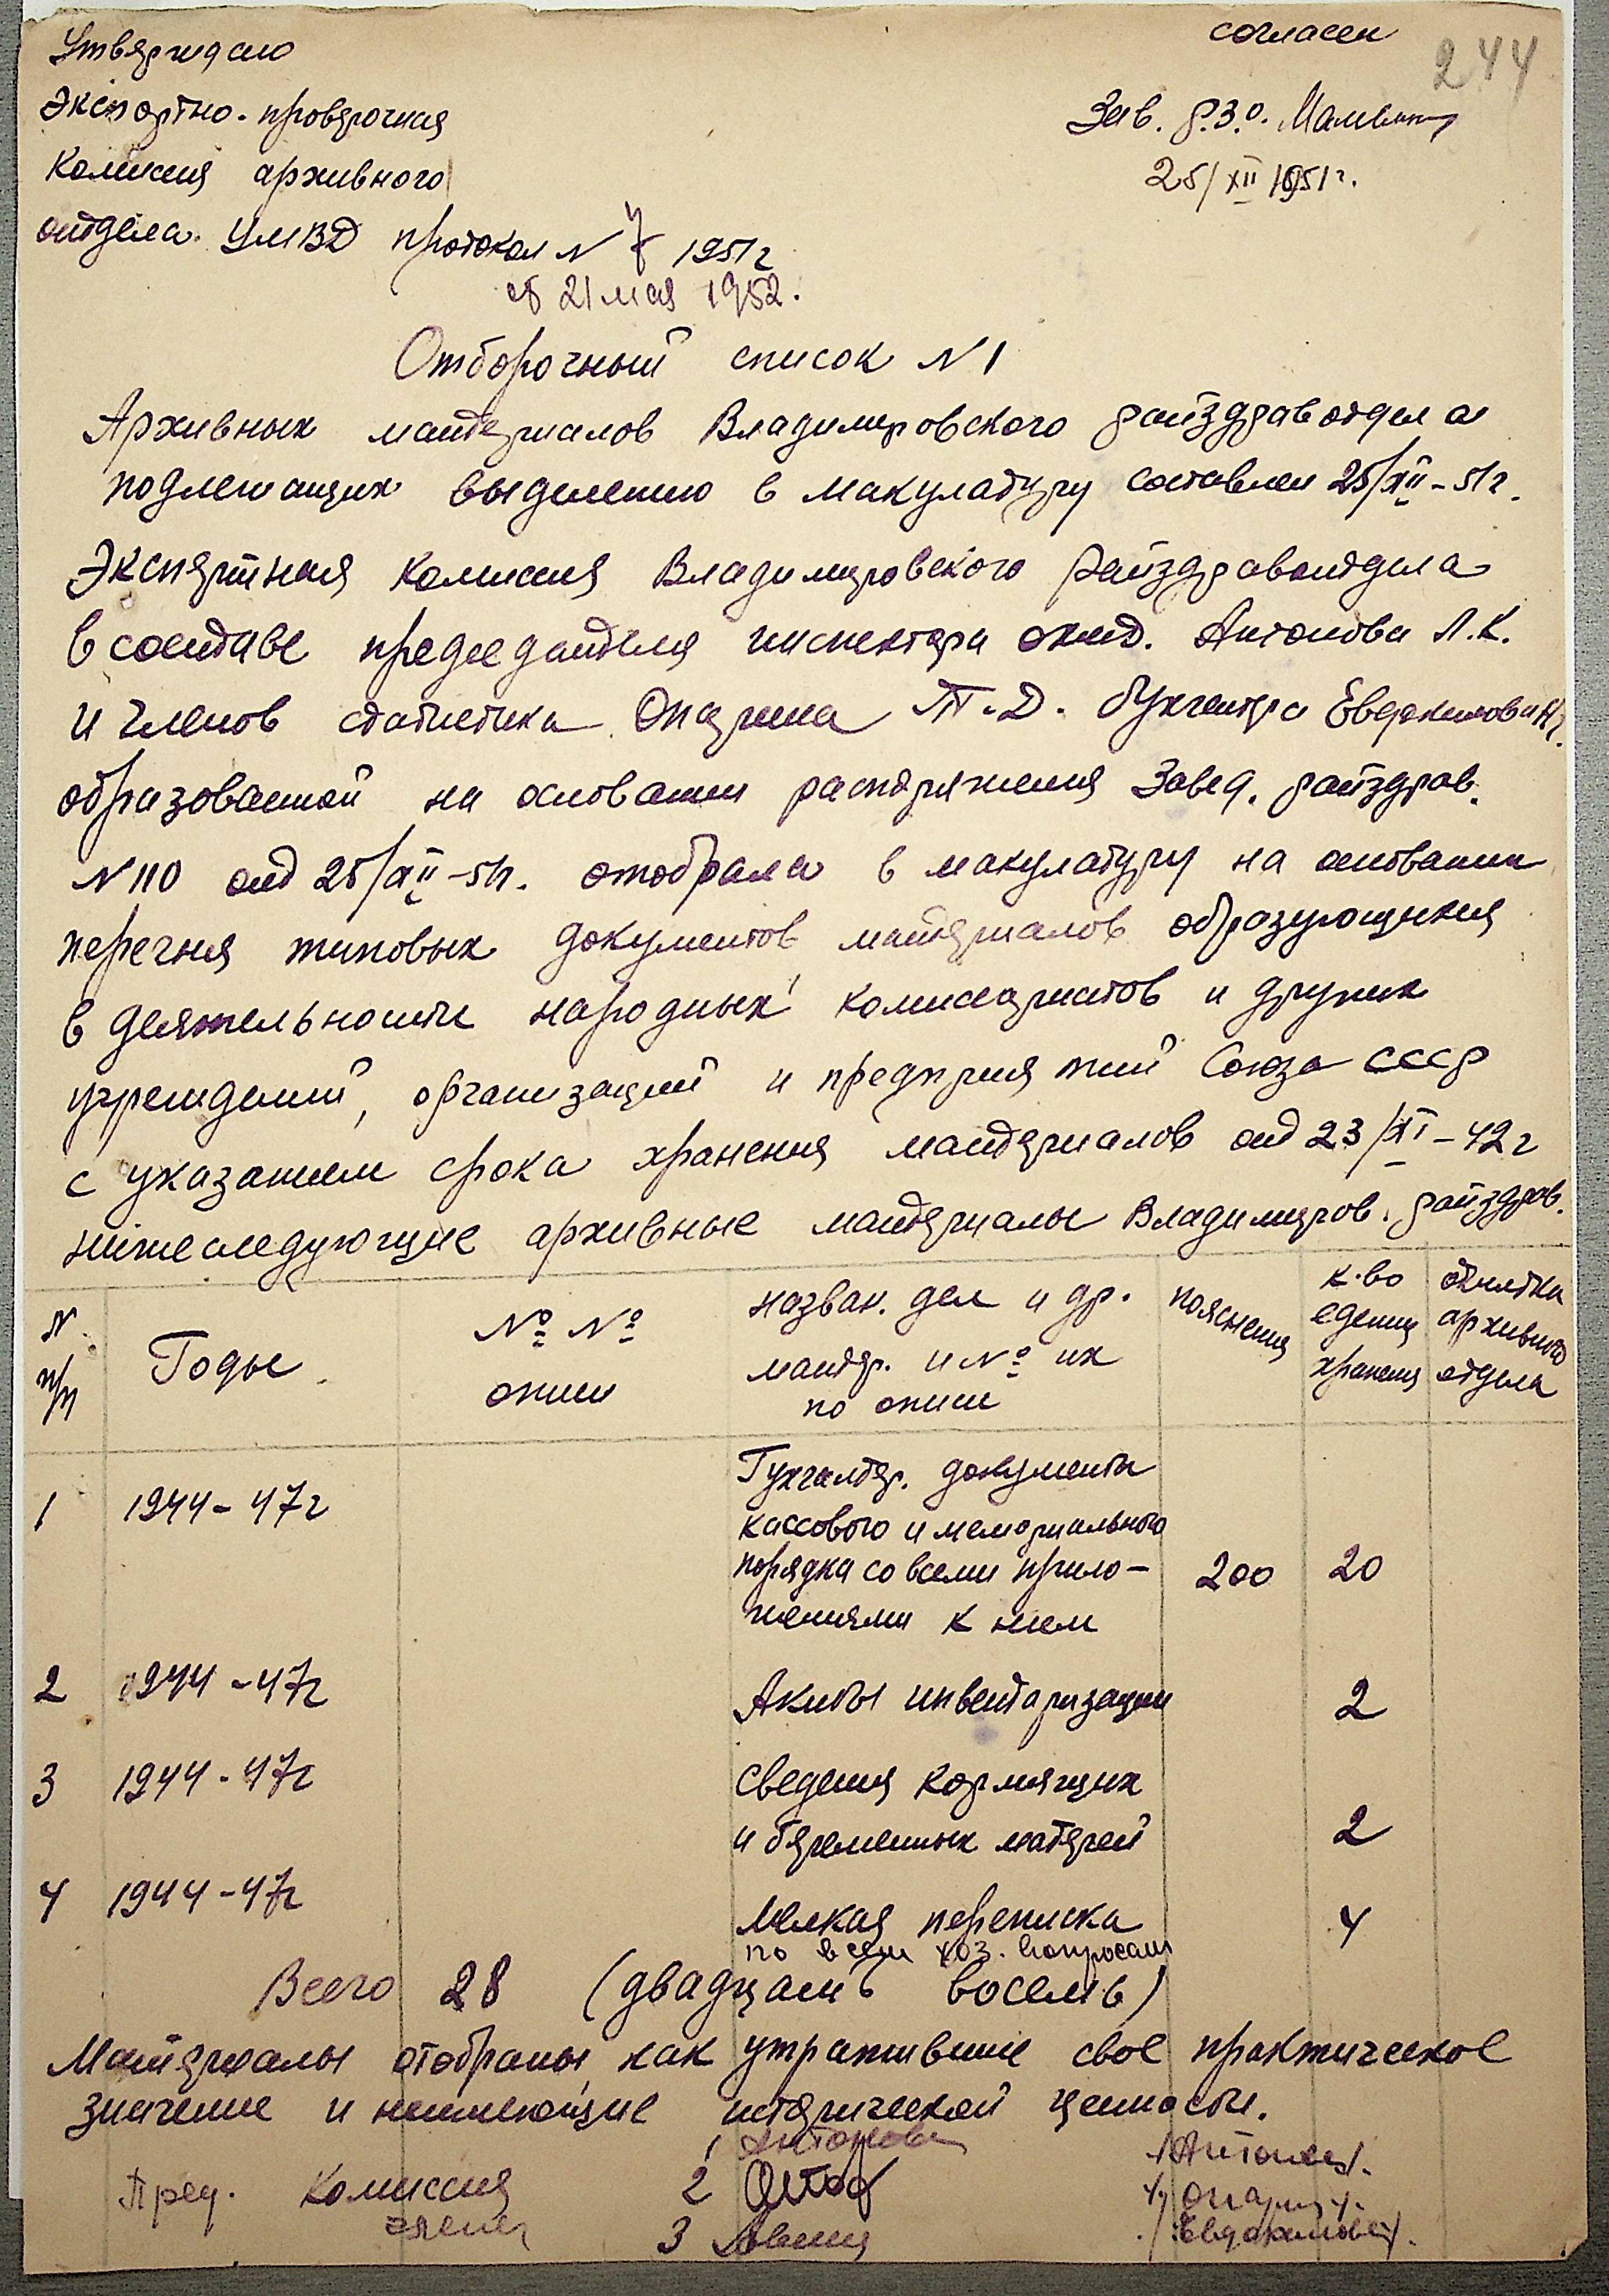 Утверждаю
Экспертно-проверочная
комиссия архивного
отдела УМВД протокол N 7 1951г
от 21 мая 1952.
согласен
244
Зав. р.з.о.
25/XII 1951г.
Отборочный список N 1
Архивных материалов Владимировского райздравотдела
подлежащих выделению в макулатуру составлен 25/XII-51г.
Экспертная комиссия Владимировского Райздравотдела
в составе председателя инспектора охмд. Антонова Л.К.
и членов статистика Опарина Т.Д. бухгалтера Евдокимова
образованной на основании распоряжения Завед. райздрав.
N 110 от 25/XII-51г. отобрала в макулатуру на основании
перечня типовых документов материалов образующихся
в деятельности народных комиссариатов и других
учреждений, организаций и предприятий Союза СССР
с указанием срока хранения материалов от 23/XI-42г
нижеследующие архивные материалы Владимиров. райздрав.
N п/п
Годы
№ № описи
назван. дел и др.
матер. и № их
по описи
пояснения
к-во
едениц
хранения
отметка
архивного
отдела
1 1944-47г
Бухгалтер. документы
кассового и мемориального
порядка со всеми прило-
жениями к ним
200 20
2 1944-47г Акты инвентаризации 2
3 1944-47г сведения кормящих
и беременных матерей 2
4 1944-47г мелкая переписка 4
по всем хоз. вопросам
Всего 28 (двадцать восемь)
Материалы отобраны как утратившие свое практическое
значение и неимеющие исторической ценности.
1 Антонова /Антонова/.
Пред. Комиссия 2 /Опарин/.
члены 3 /Евдокимова/.